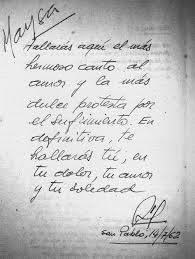 Maysa
Hallarás aquí el más
hermoso canto al
amor y la más
dulce protesta por
el sufrimiento. En
definitiva, te
hallarás tú, en
tu dolor, tu amor
y tu soledad
San Pablo, 14/7/62